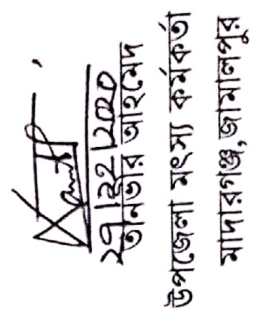 ২৭/১২/২০২০
তানভীর আহমেদ
উপজেলা মৎস্য কর্মকর্তা
মাদারগঞ্জ, জামালপুর